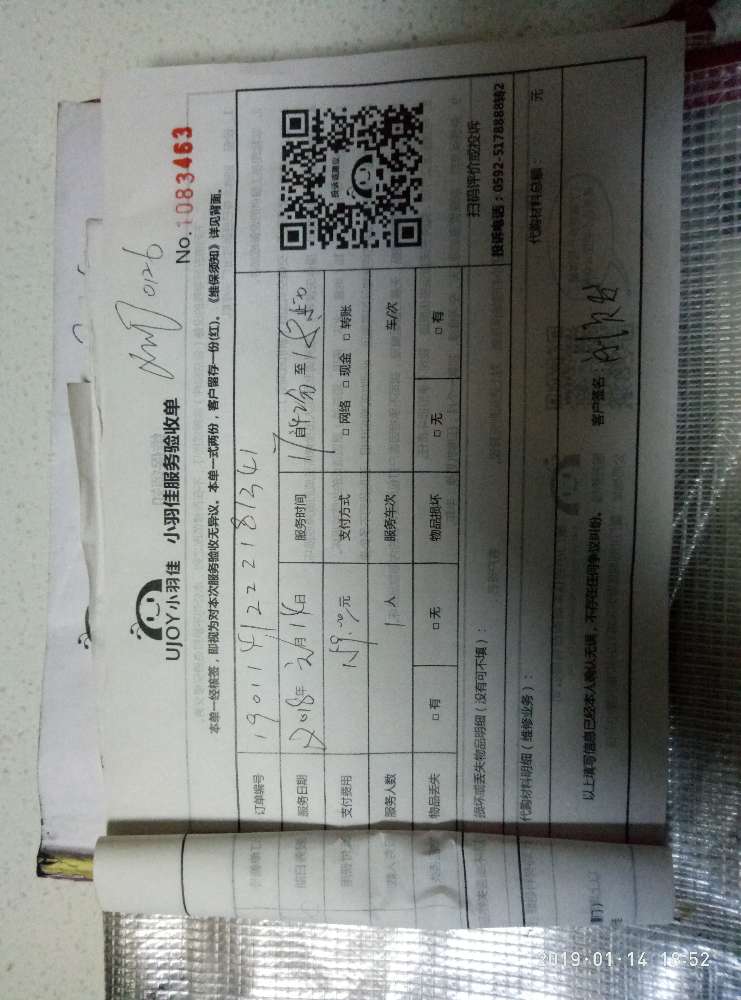 UJOY小羽佳 小羽佳服务验收单
0126
No. 1083463
本单一经核签，即视为对本次服务验收无异议。本单一式两份，客户留存一份(红)。《维保须知》详见背面。
订单编号 190114122218134L1
服务日期 2018年 月14日 服务时间 17自42分 至
支付费用 159.00元 支付方式 □网络 □现金 □转账
服务人数 1人 服务车次 车/次
物品丢失 □有 □无 物品损坏 □无 □有
扫码评价或投诉
投诉电话：0592-5178888转2
损坏或丢失物品明细（没有可不填）：
代购材料明细（维修业务）： 代购材料总额： 元
以上填写信息已经本人确认无误，不存在任何争议纠纷。 客户签名：
2019-01-14 18:52